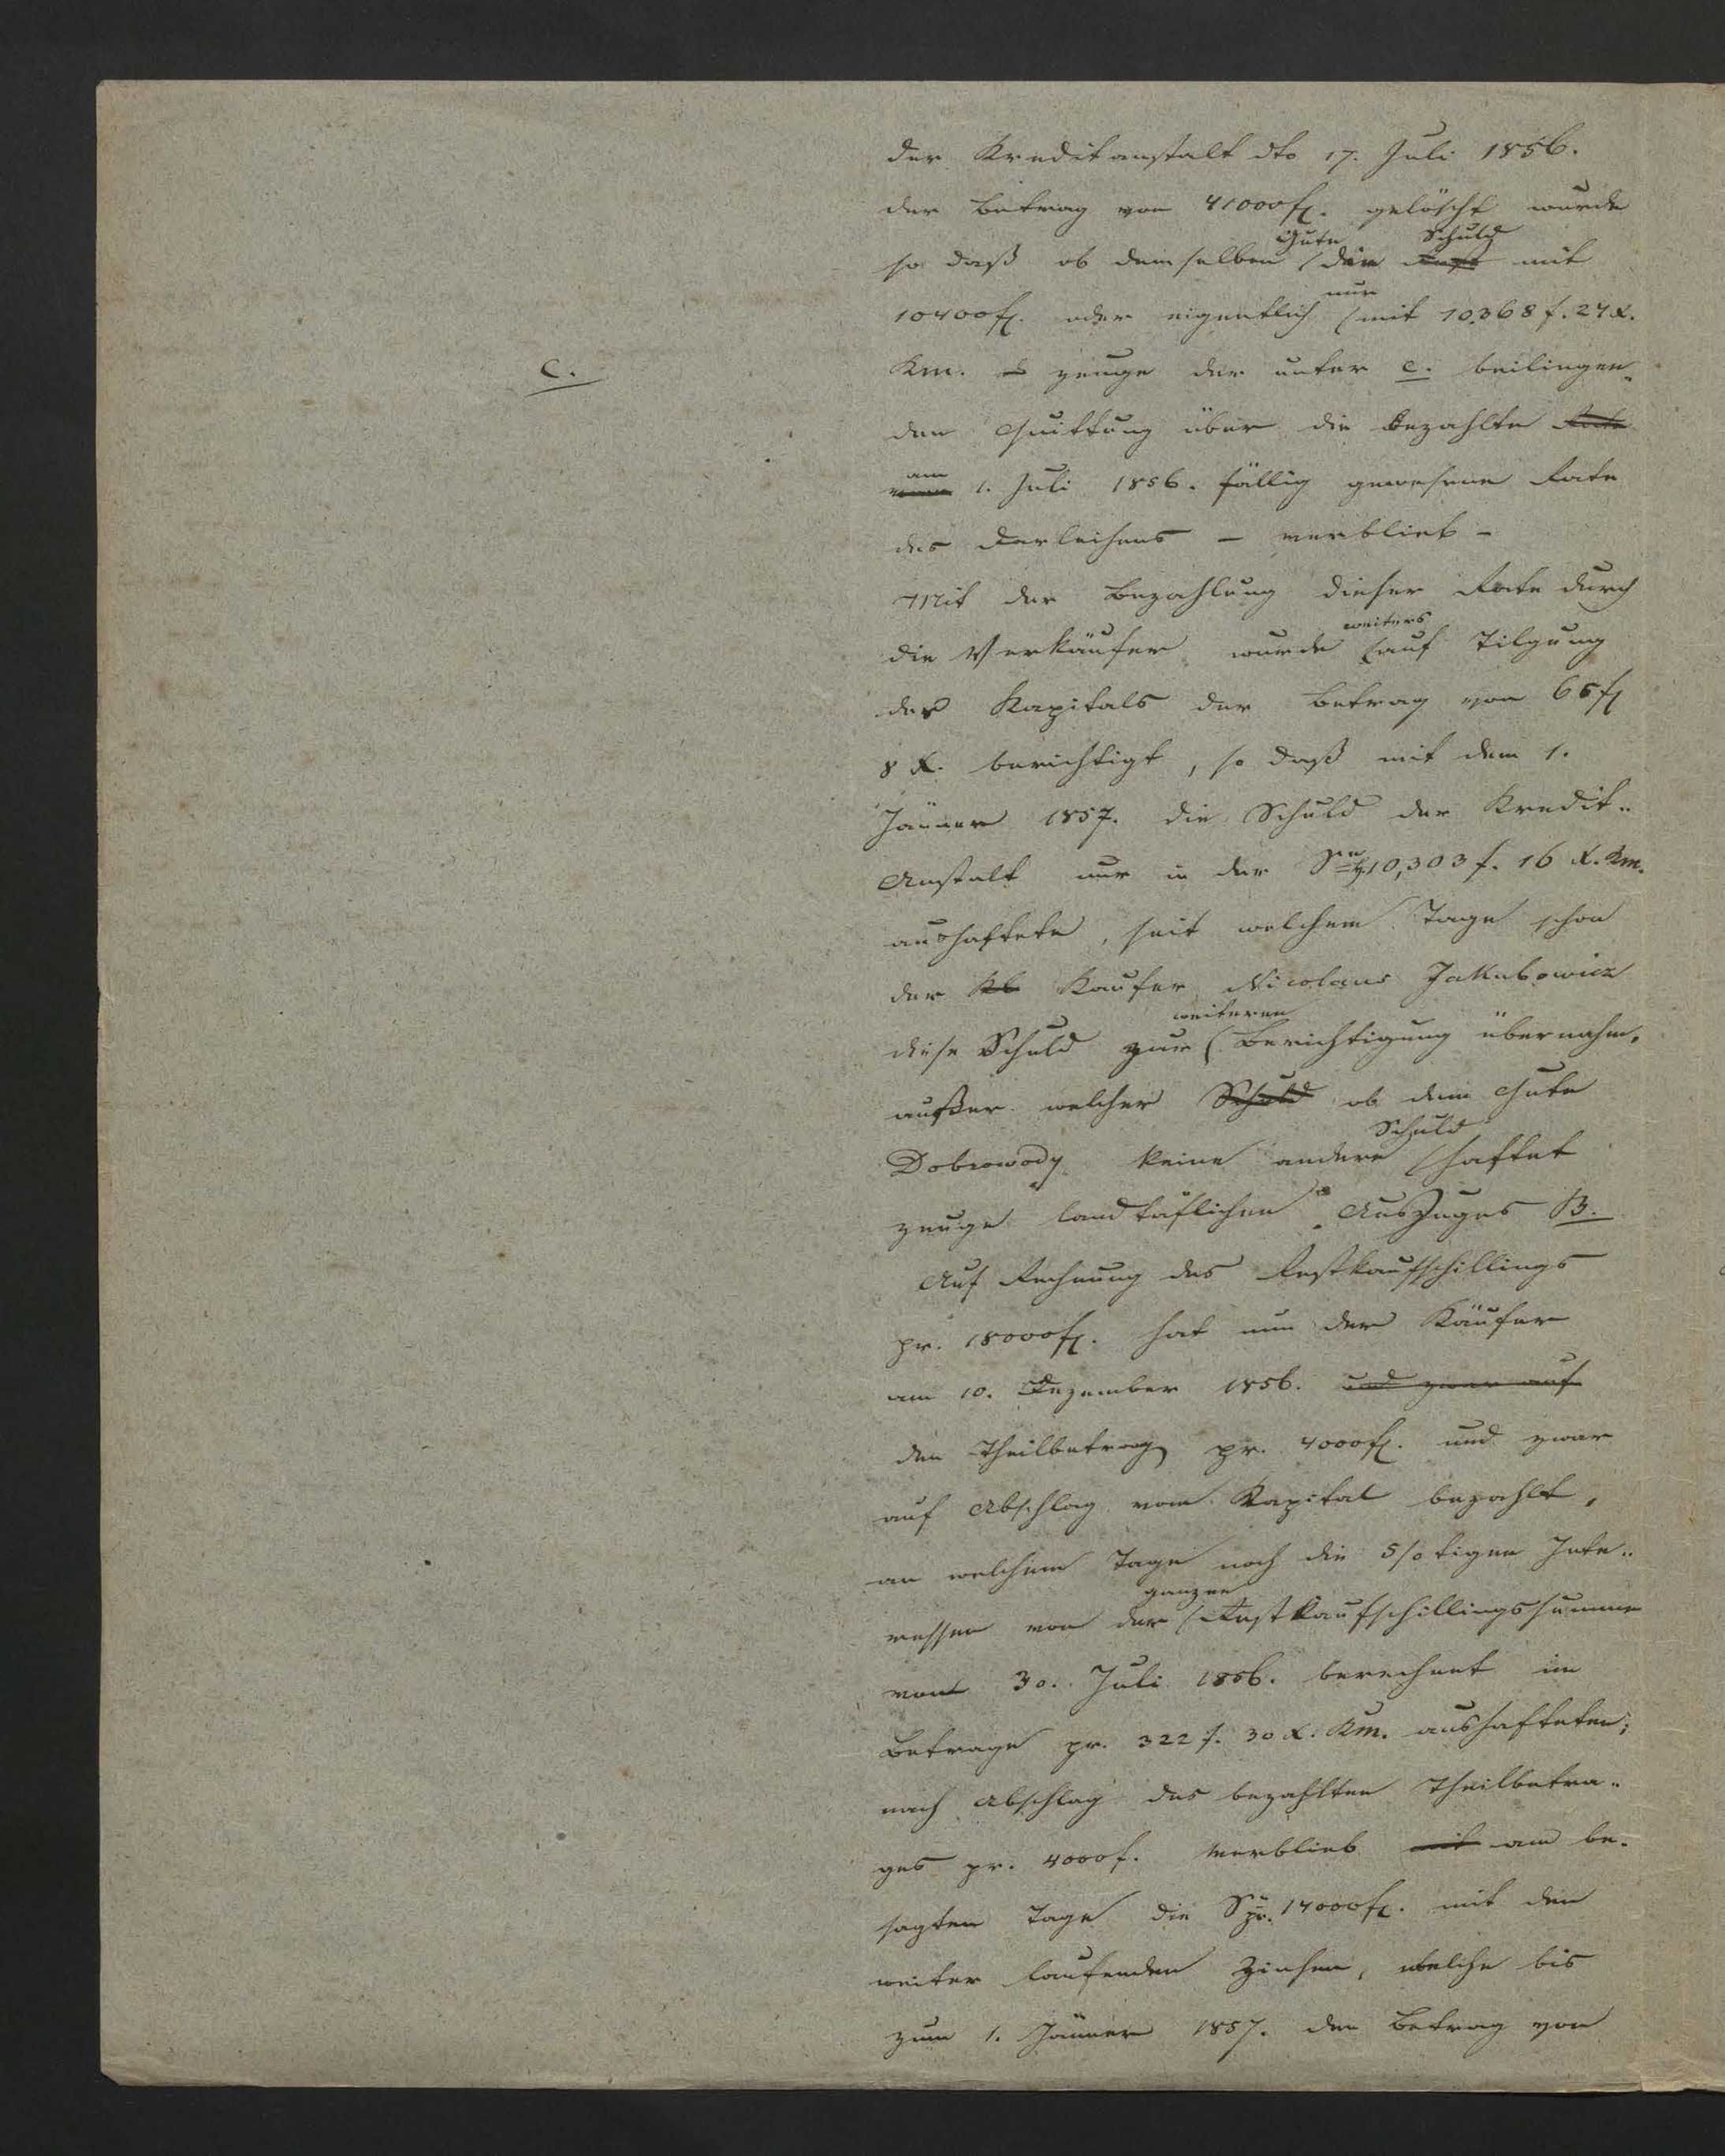 der Kreditanstalt dto 17. Juli 1856.
der Betrag von 41000 f. gelöscht wurde
Gute Schuld
so daß ob demselben die Rest mit
nur
10400 f. oder eigentlich mit 10,368 f. 24 x.
C.
Km. – zeuge der unter C. beiliegen-
den Quittung über die bezahlte Rate
am
vom 1. Juli 1856. fällig gewesene Rate
des Darleihens – verblieb –
Mit der Bezahlung dieser Rate durch
weiters
die Verkäufer wurde auf Tilgung
des Kapitals der Betrag von 65 f
8 x. berichtigt, so daß mit dem 1.
Jänner 1857. die Schuld der Kredit-
Anstalt nur in der 10,303 f. 16 x. Km.
aushaftete, seit welchem Tage schon
der Kaufer Nicolaus Jakubowicz
weiteren
diese Schuld zur Berichtigung übernahm,
außer welcher Schuld ob dem Gute
Schuld
Dobrowody keine andere haftet
zeuge landtäflichen Auszuges B.
Auf Rechnung des Restkaufschillings
pr. 18000 f. hat nun der Käufer
am 10. Dezember 1856. und zwar auf
den Theilbetrag pr. 4000 f. und zwar
auf Abschlag vom Kapital bezahlt,
an welchem Tage noch die 5/0 tigen Inte-
ganzen
ressen von der Restkaufschillingssumme
vom 30. Juli 1856. berechnet im
Betrage pr. 322 f. 30 x. Km. aushafteten;
nach Abschlag des bezahlten Theilbetra-
ges pr. 4000 f. verblieb mit am be-
sagten Tage die pr. 14000 f. mit den
weiter laufenden Zinsen, welche bis
zum 1. Jänner 1857. den Betrag von